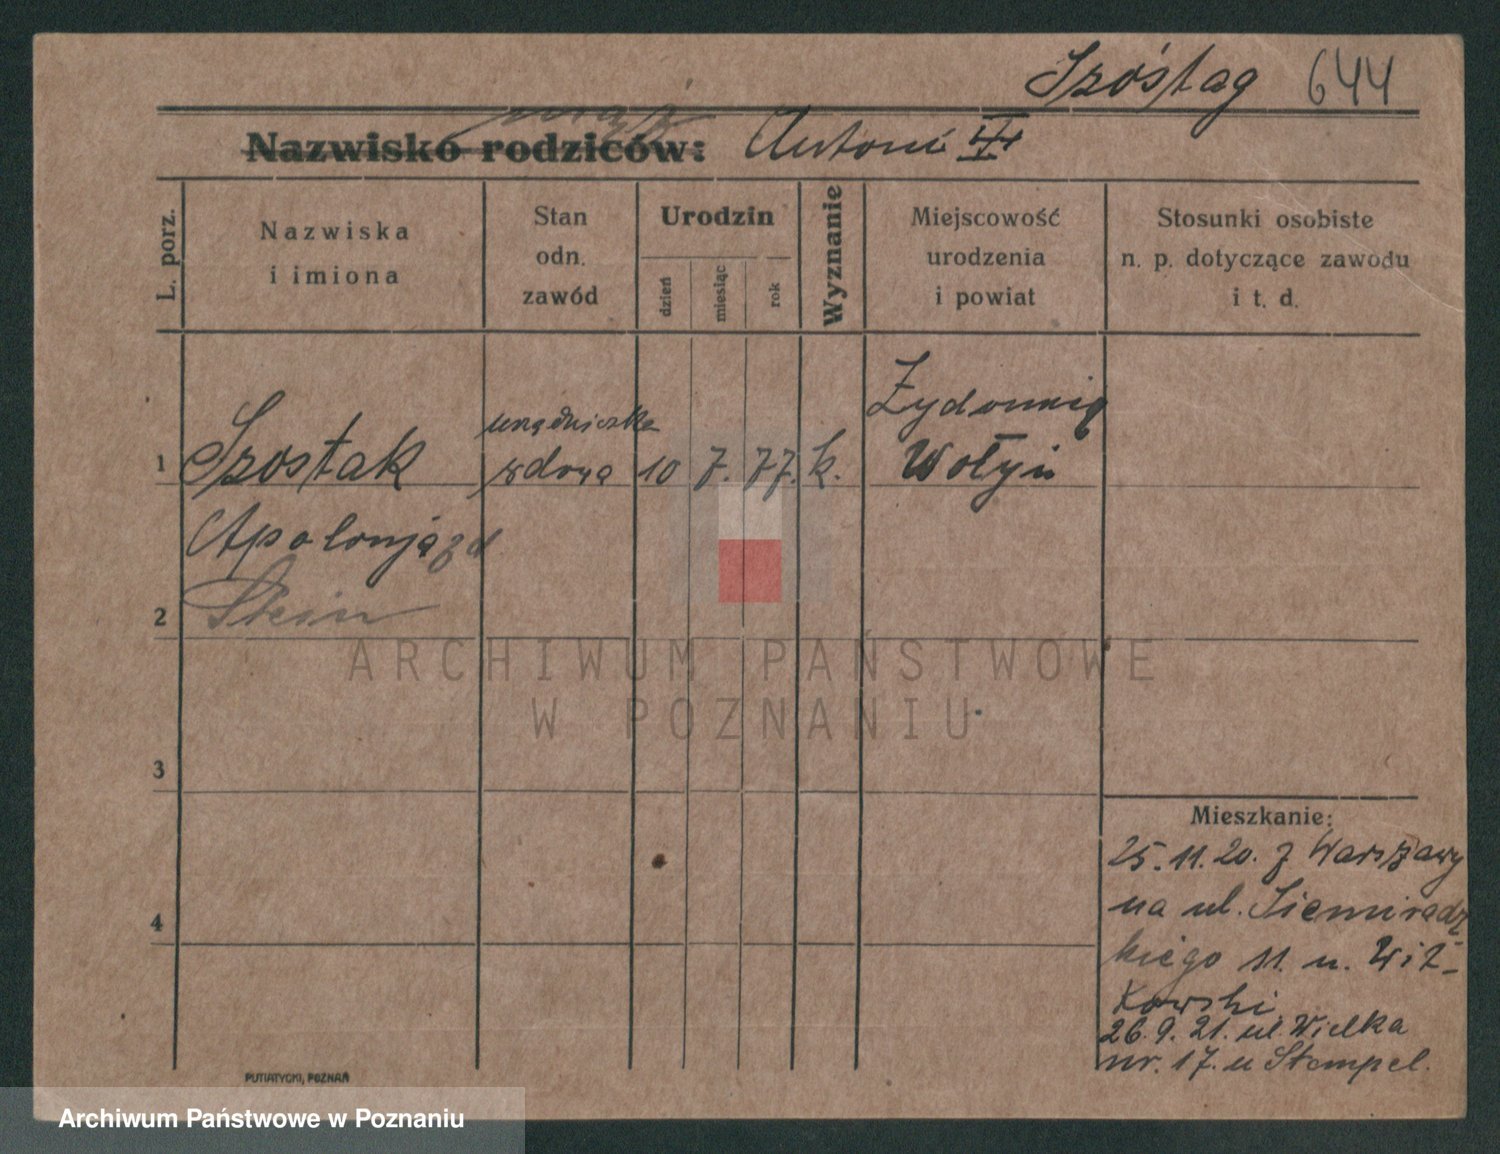 Szóstag 644
mąż
Nazwisko rodziców: Antoni
L. porz.
Nazwiska
i imiona
Stan
odn.
zawód
Urodzin
dzień
miesiąc
rok
Wyznanie
Miejscowość
urodzenia
i powiat
Stosunki osobiste
n. p. dotyczące zawodu
i t. d.
1 Szostak urzędniczka wdowa 10 7. 77. k. Wołyń
Apolonja zd
2 Stein
3
4
ARCHIWUM PAŃSTWOWE
W POZNANIU
Mieszkanie:
25. 11. 20. z Warszawy
na ul. Siemiradz
kiego 11. u. Wit-
kowski
26. 9. 21. ul. Wielka
nr. 17. u Stempel.
PUTIATYCKI, POZNAŃ
Archiwum Państwowe w Poznaniu